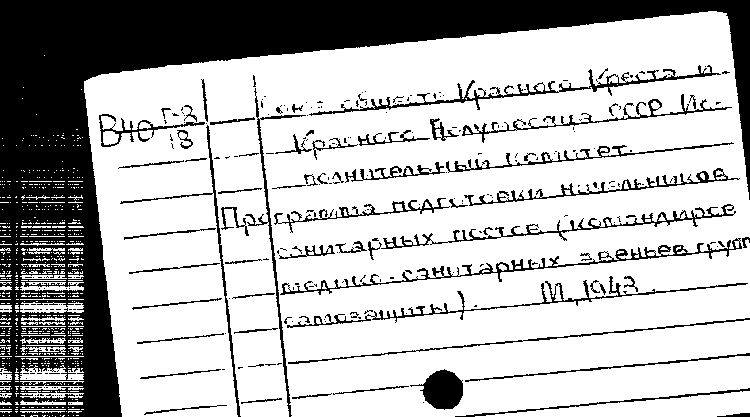 В40 Г-3/18
Союз обществ Красного Креста и
Красного Полумесяца СССР. Ис-
полнительный комитет.
Программа подготовки начальников
санитарных постов (командиров
медико-санитарных звеньев групп
самозащиты). М., 1943.